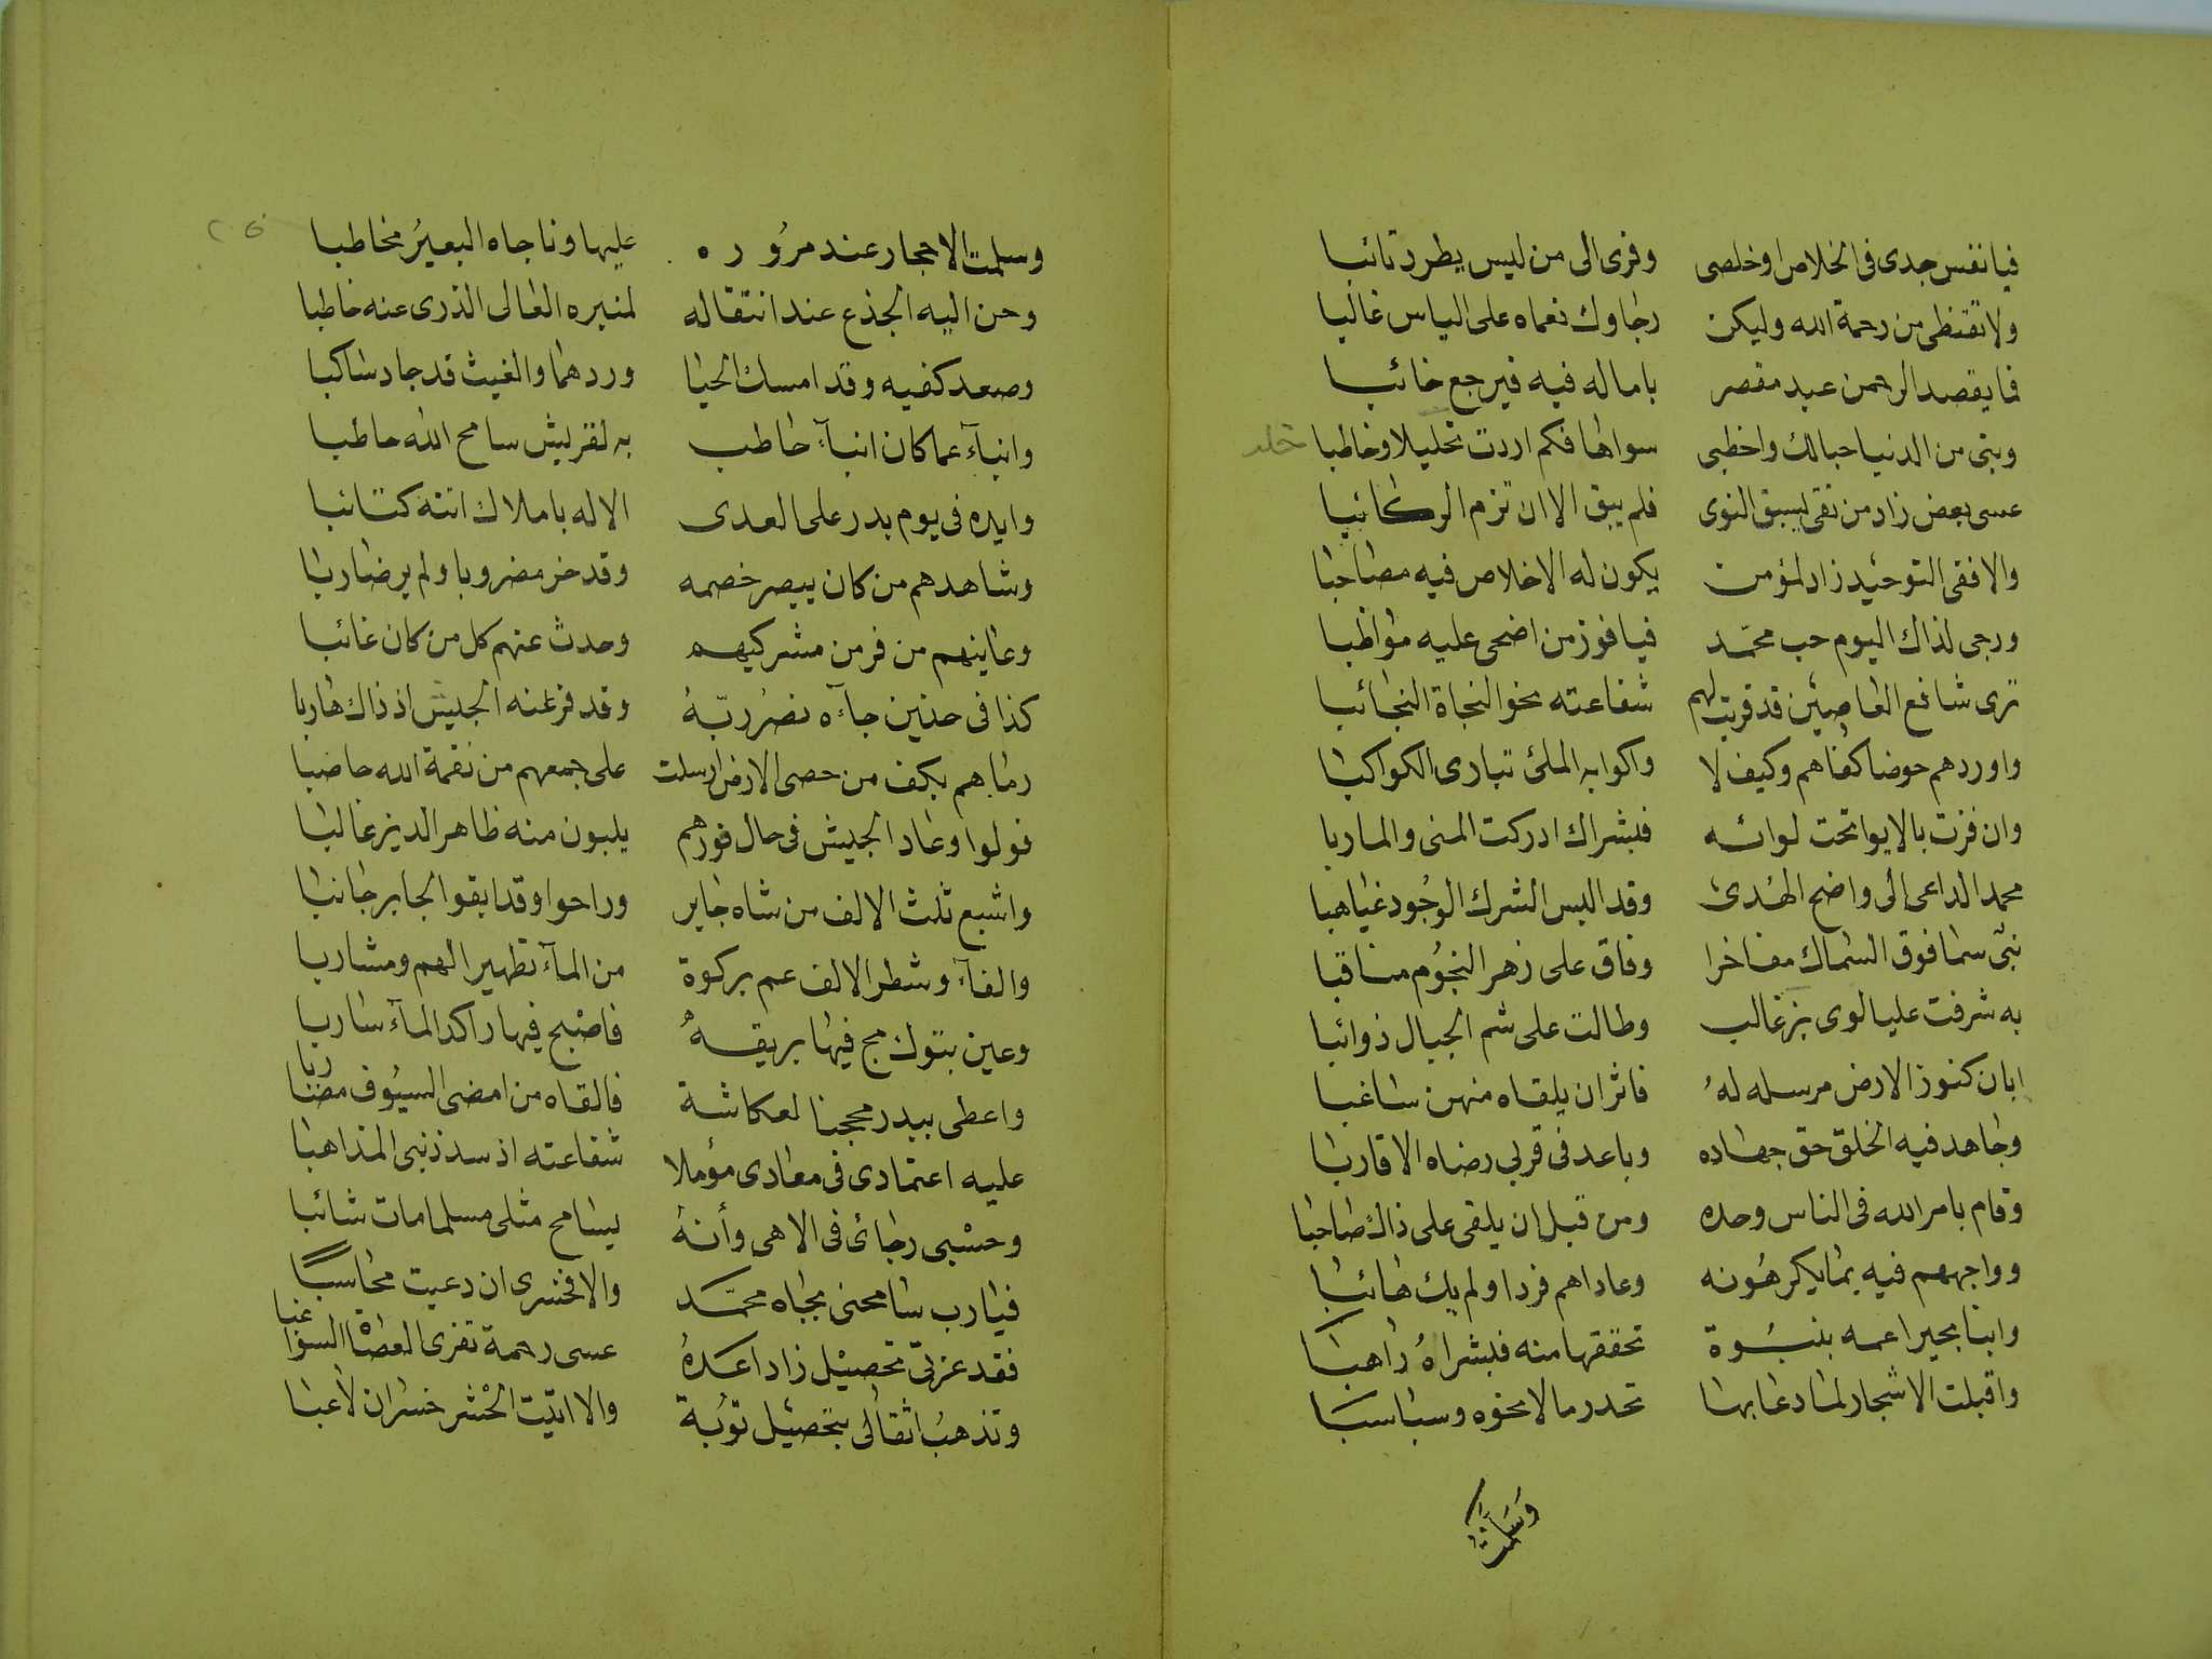 فيا نفس جدى فى الخلاص اوخلصى وفرى الى من ليس يطرد تائبا
ولا تقنطى من رحمة الله وليكن رجاوك نعماه على الياس غالبا
فما يقصد الرحمن عبد مقصر باماله فيه فيرجع خائبا
وبتى من الدنيا حبالك واخطبى سواها فكم اردت خليلا وخاطبا
عسى بعض زاد من تقى لسبق النوى فلم يبق الا ان تزم الركائبا
والا ففى التوحيد زاد لمؤمن يكون له الاخلاص فيه مصاحبا
ورجى لذاك اليوم حب محمد فيا فوز من اضحى عليه مواظبا
ترى شافع العاصين قد قربت لهم شفاعته نحو النجاة النجائبا
واوردهم حوضا كفاهم وكيف لا واكوابه الملئ تبارى الكواكبا
وان فزت بالايوا تحت لوائه فبشراك ادركت المنى والماربا
محمد الداعى الى واضح الهدى وقد البس الشرك الوجود غياهبا
نبى سما فوق السماك مفاخرا وفاق على زهر النجوم مناقبا
به شرفت عليا لوى بن غالب وطالت على شم الجبال ذوائبا
ابان كنوز الارض مرسله له فاثر ان يلقاه منهن ساغبا
وجاهد فيه الخلق حق جهاده وباعد فى قربى رضاه الاقاربا
وقام بامر الله فى الناس وحده ومن قبل ان يلقى على ذاك صاحبا
وواجههم فيه بما يكرهونه وعاداهم فردا ولم يك هائبا
وانبا بحيرا عمه بنبوة تحققها منه فبشراه راهبا
واقبلت الاشجار لما دعا بها تحدر مالا نحوه وسباسبا
وسلمت
وسلمت الاحجار عند مروره عليها وناجاه البعير مخاطبا
وحن اليه الجذع عند انتقاله لمنبره العالى الذرى عنه خاطبا
وصعد كفيه وقد امسك الحيا وردهما والغيث قد جاد ساكبا
وانبآء عما كان انبآء حاطب به لقريش سامح الله حاطبا
وايده فى يوم بدر على العدى الاله باملاك اتته كتائبا
وشاهدهم من كان يبصر خصمه وقد خر مضروبا ولم ير ضاربا
وعاينهم من فر من مشركيهم وحدث عنهم كل من كان غائبا
كذا فى حنين جآءه نصر ربه وقد فر عنه الجيش اذ ذاك هاربا
رماهم بكف من حصى الارض ارسلت على جمعهم من نقمة الله حاصبا
فولوا وعاد الجيش فى حال فورهم يلبون منه ظاهر الدين غالبا
واشبع ثلث الالف من شاه جابر وراحوا وقد ابقوا لجابر جانبا
والفآ وشطر الالف عم بركوة من المآء تطهيرا لهم ومشاربا
وعين بتبوك مج فيها بريقه فاصبح فيها راكد المآء ساربا
واعطى ببدر محجنا لعكاشة فالقاه من امضى السيوف مضاربا
عليه اعتمادى فى معادى مؤملا شفاعته اذ سد ذنبى المذاهبا
وحسبى رجائى فى الاهى وأنه يسامح مثلى مسلما مات شائبا
فيا رب سامحنى بجاه محمد والا فخسرى ان دعيت محاسبا
فقد عز بى تحصيل زاد اعده عسى رحمة تقرى العصاة السواغبا
وتذهب اثقالى بتحصيل توبة والا اتيت الحشر خسران لاعبا